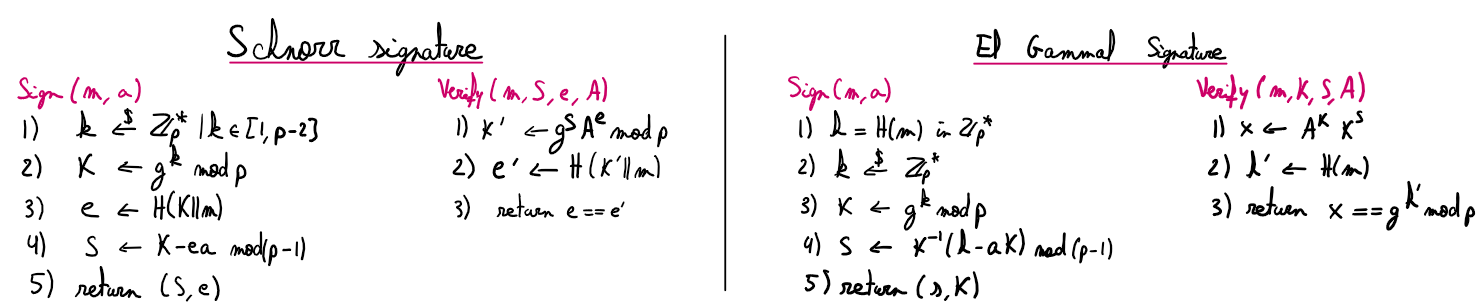 Schnorr signature
Sign (m, a)
1) k ←$ ℤp* | k ∈ [1, p-2]
2) K ← g^k mod p
3) e ← H(K||m)
4) S ← K-ea mod(p-1)
5) return (S, e)
Verify (m, S, e, A)
1) K' ← g^S A^e mod p
2) e' ← H(K'||m)
3) return e == e'
El Gammal Signature
Sign(m, a)
1) h = H(m) in ℤp*
2) k ←$ ℤp*
3) K ← g^k mod p
4) S ← K^-1(h-aK) mod (p-1)
5) return (s, K)
Verify (m, K, S, A)
1) x ← A^K K^S
2) h' ← H(m)
3) return x == g^h' mod p